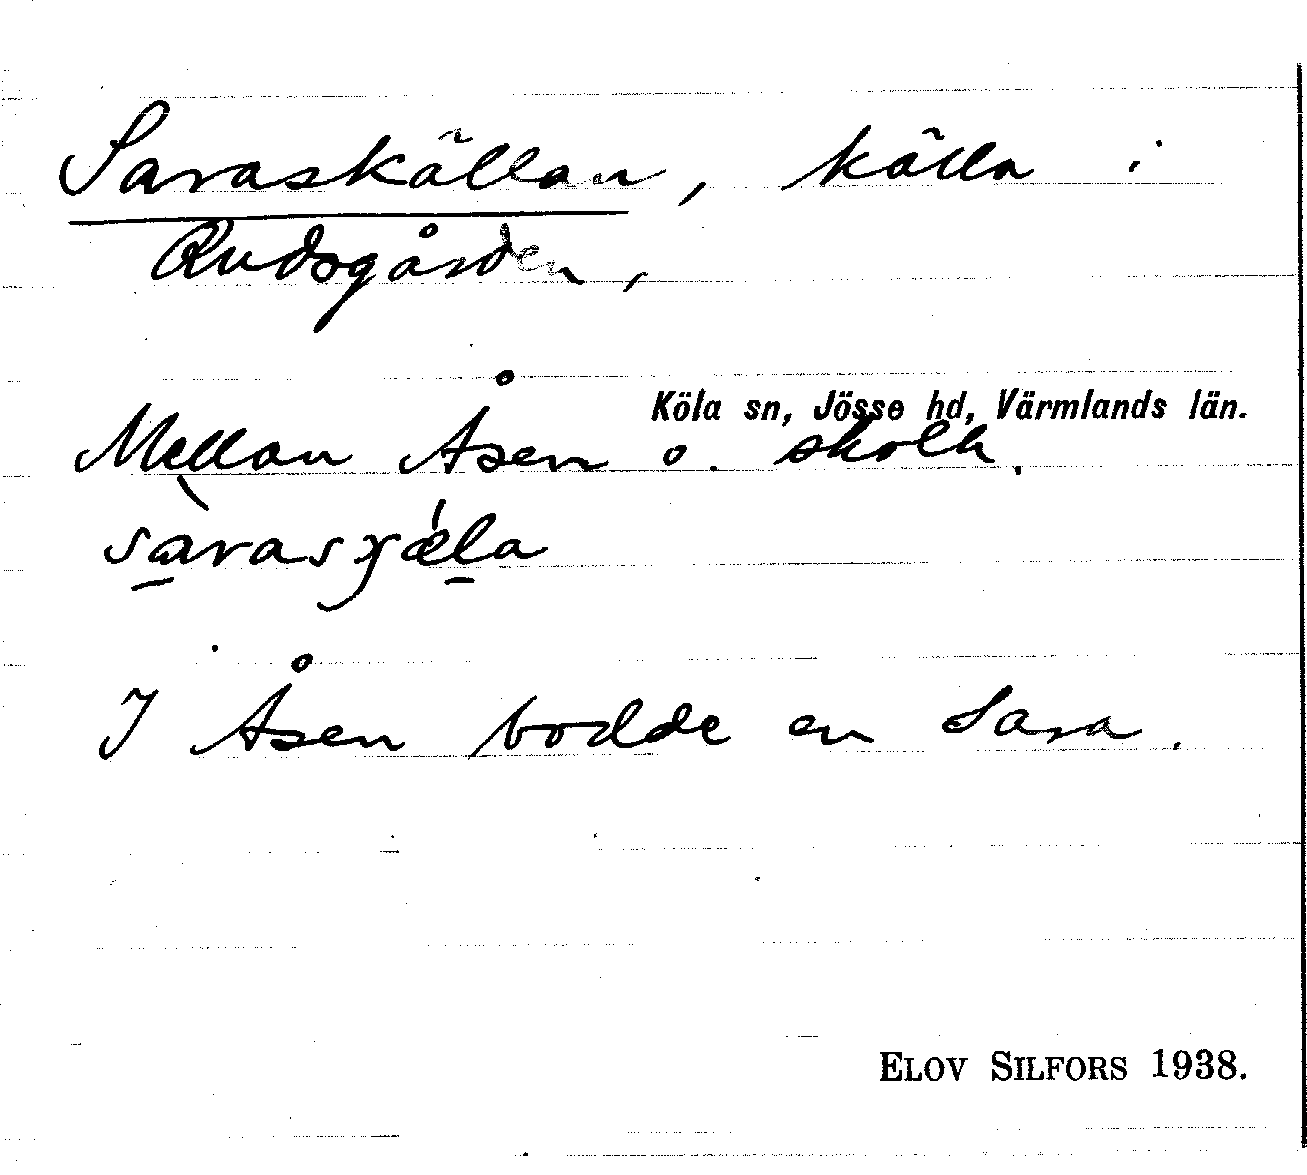 Saraskällan, källa i
Rudsgården,
Köla sn, Jösse hd, Värmlands län.
Mellan Åsen o. skolh.
I Åsen bodde en Sara.
ELOV SILFORS 1938.